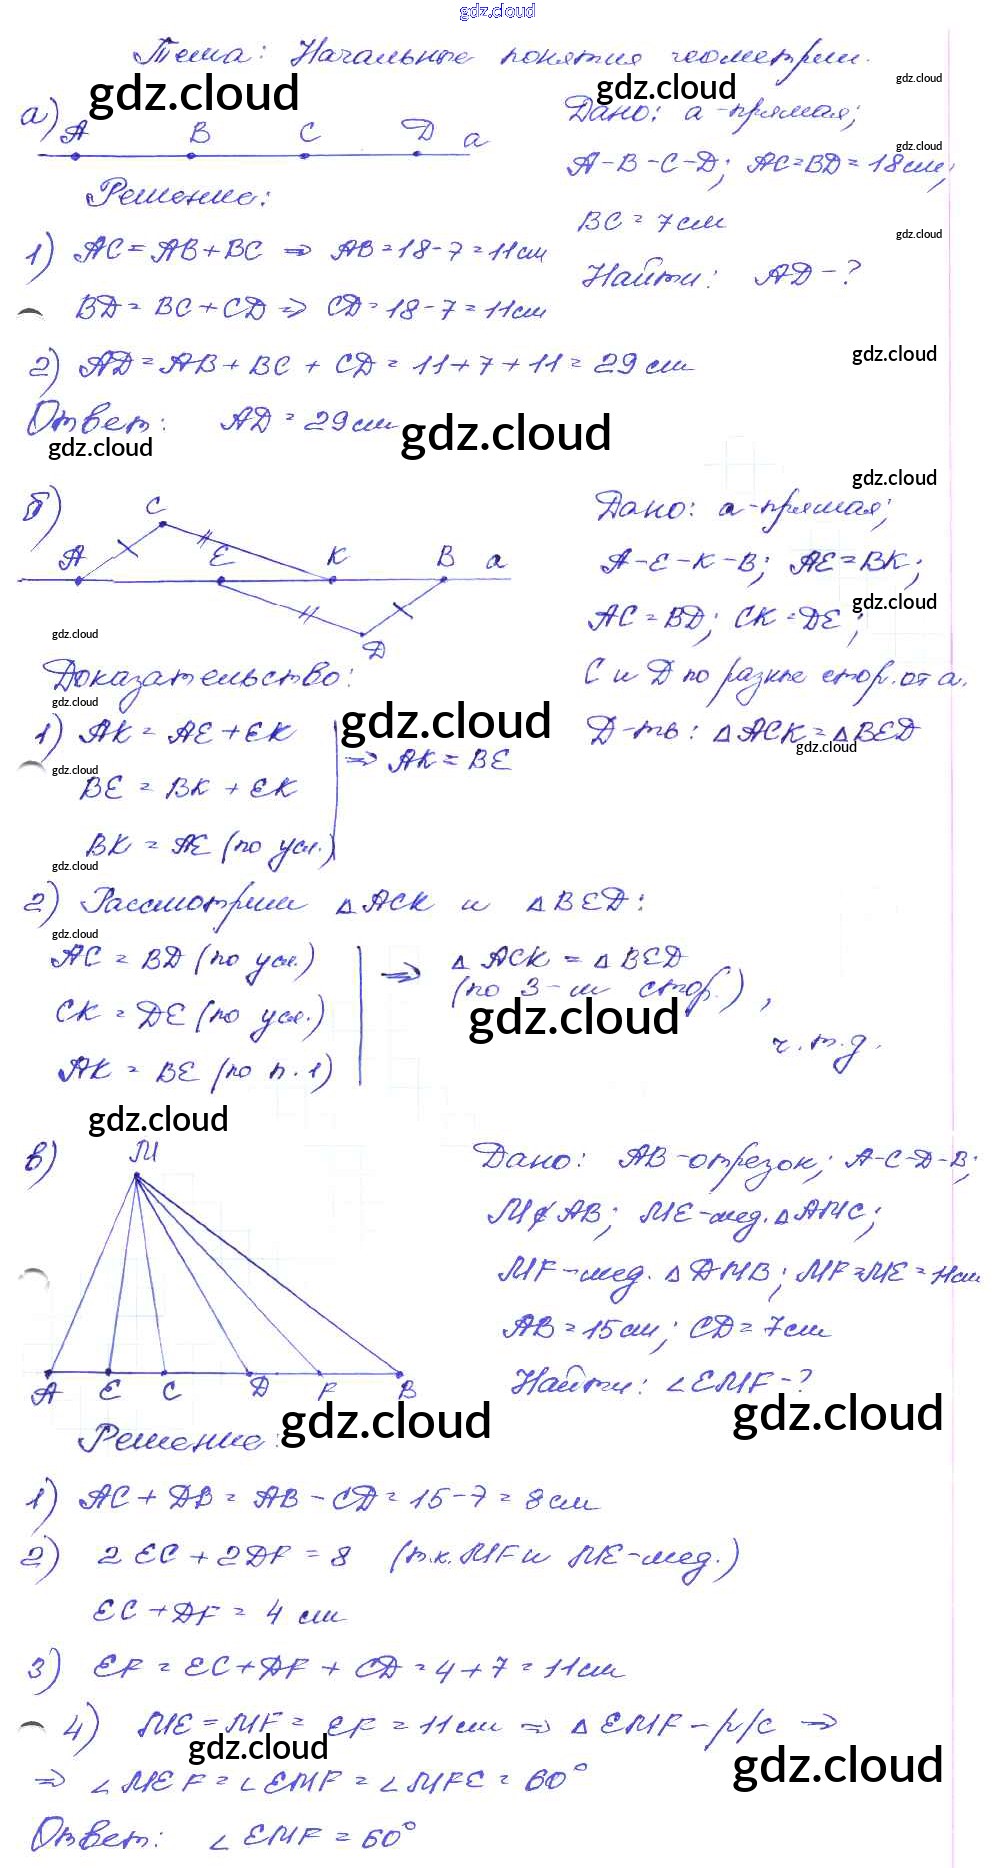 gdz.cloud
Тема: Начальные понятия геометрии.
gdz.cloud gdz.cloud gdz.cloud
а) A B C D a
Дано: a - прямая;
gdz.cloud
A-B-C-D; AC=BD=18см;
BC=7см
gdz.cloud
Найти: AD-?
Решение:
1) AC=AB+BC ⇒ AB=18-7=11см
BD=BC+CD ⇒ CD=18-7=11см
gdz.cloud
2) AD=AB+BC+CD=11+7+11=29см
Ответ: AD=29см
gdz.cloud gdz.cloud
gdz.cloud
б) C A E K B a D
Дано: a-прямая;
A-E-K-B; AE=BK;
gdz.cloud
AC=BD; CK=DE;
C и D по разные стор. от a.
Д-ть: △ACK=△BED
gdz.cloud
gdz.cloud
Доказательство:
gdz.cloud
1) AK=AE+EK
gdz.cloud
⇒ AK=BE
gdz.cloud
BE=BK+EK
BK=AE (по усл.)
gdz.cloud
2) Рассмотрим △ACK и △BED:
gdz.cloud
AC=BD (по усл.)
⇒ △ACK=△BED
CK=DE (по усл.)
(по 3-м стор.),
gdz.cloud
ч.т.д.
AK=BE (по п.1)
gdz.cloud
в) M A E C D F B
Дано: AB-отрезок; A-C-D-B;
M∉AB; ME-мед.△AMC;
MF-мед.△DMB; MF=ME=11см
AB=15см; CD=7см
Найти: ∠EMF-?
gdz.cloud gdz.cloud
Решение:
1) AC+DB=AB-CD=15-7=8см
2) 2EC+2DF=8 (т.к. MF и ME-мед.)
EC+DF=4см
3) EF=EC+DF+CD=4+7=11см
4) ME=MF=EF=11см ⇒ △EMF-р/с ⇒
gdz.cloud gdz.cloud
⇒ ∠MEF=∠EMF=∠MFE=60°
Ответ: ∠EMF=60°